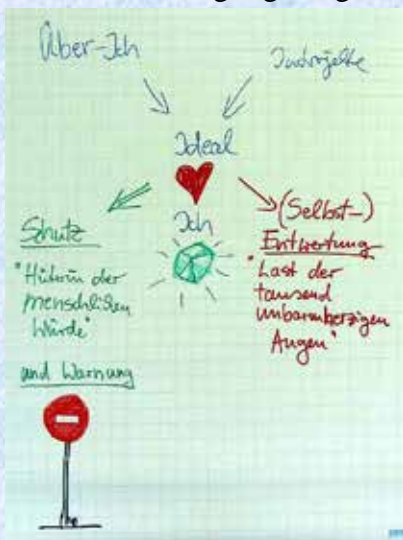 Über-Ich
Introjekte
Ideal
Ich
Schutz
"Hüterin der
menschlichen
Würde"
und Warnung
(Selbst-)
Entwertung
"Last der
tausend
unbarmherzigen
Augen"